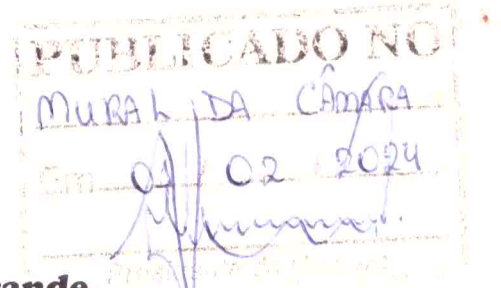 PUBLICADO NO
MURAL DA CÂMARA
Em 01 02 2024
rande